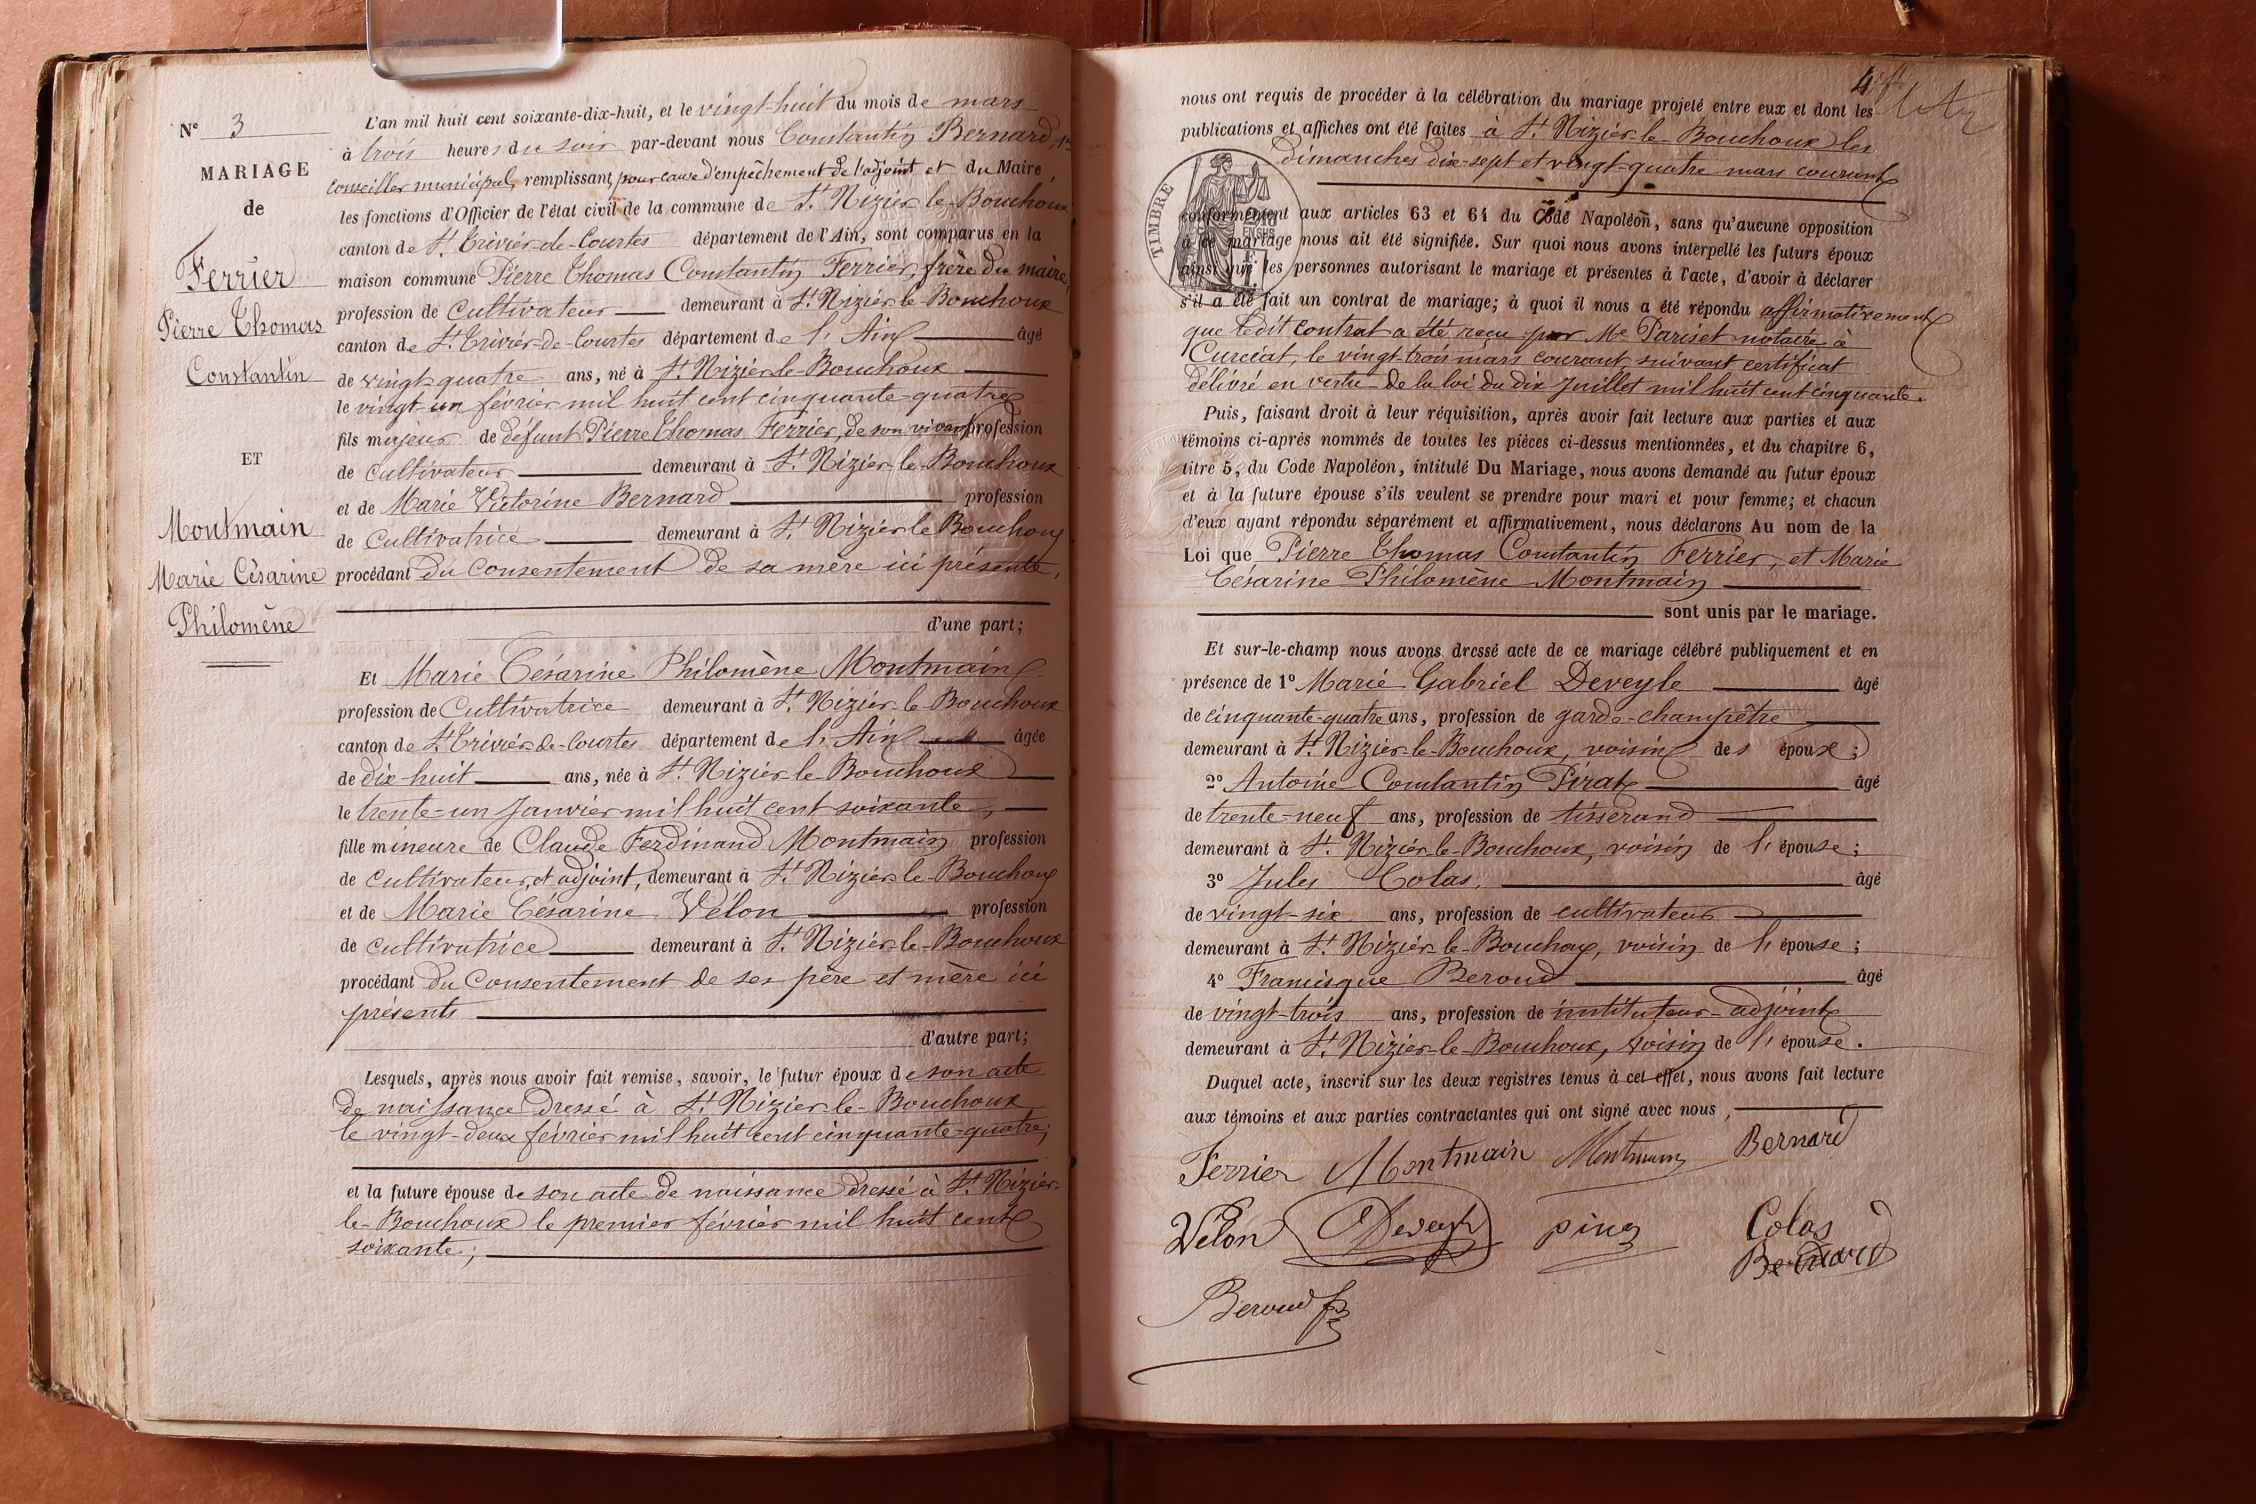 N° 3
MARIAGE
de
Ferrier
Pierre Thomas
Constantin
ET
Montmain
Marie Césarine
Philomène
L'an mil huit cent soixante-dix-huit, et le vingt-huit du mois de mars
à trois heures du soir par-devant nous Constantin Bernard, 1er
conseiller municipal, remplissant, pour cause d'empêchement de l'adjoint et du Maire,
les fonctions d'Officier de l'état civil de la commune de St Nizier-le-Bouchoux
canton de St Trivier-de-Courtes département de l'Ain, sont comparus en la
maison commune Pierre Thomas Constantin Ferrier, frère du maire,
profession de cultivateur demeurant à St Nizier-le-Bouchoux
canton de St Trivier-de-Courtes département de l'Ain âgé
de vingt-quatre ans, né à St Nizier-le-Bouchoux
le vingt-un février mil huit cent cinquante-quatre
fils majeur de défunt Pierre Thomas Ferrier, de son vivant profession
de cultivateur demeurant à St Nizier-le-Bouchoux
et de Marie Victorine Bernard profession
de cultivatrice demeurant à St Nizier-le-Bouchoux
procédant du consentement de sa mère ici présente,
d'une part;
Et Marie Césarine Philomène Montmain
profession de cultivatrice demeurant à St Nizier-le-Bouchoux
canton de St Trivier-de-Courtes département de l'Ain âgée
de dix-huit ans, née à St Nizier-le-Bouchoux
le trente-un janvier mil huit cent soixante,
fille mineure de Claude Ferdinand Montmain profession
de cultivateur, et adjoint, demeurant à St Nizier-le-Bouchoux
et de Marie Césarine Vélon profession
de cultivatrice demeurant à St Nizier-le-Bouchoux
procédant du consentement de ses père et mère ici
présents
d'autre part;
Lesquels, après nous avoir fait remise, savoir, le futur époux de son acte
de naissance dressé à St Nizier-le-Bouchoux
le vingt-deux février mil huit cent cinquante-quatre;
et la future épouse de son acte de naissance dressé à St Nizier-
le-Bouchoux le premier février mil huit cent
soixante;
4
nous ont requis de procéder à la célébration du mariage projeté entre eux et dont les
publications et affiches ont été faites à St Nizier-le-Bouchoux les
dimanches dix-sept et vingt-quatre mars courant
TIMBRE
conformément aux articles 63 et 64 du Code Napoléon, sans qu'aucune opposition
à ce mariage nous ait été signifiée. Sur quoi nous avons interpellé les futurs époux
ainsi que les personnes autorisant le mariage et présentes à l'acte, d'avoir à déclarer
s'il a été fait un contrat de mariage; à quoi il nous a été répondu affirmativement
que ledit contrat a été reçu par Me Pariset notaire à
Curciat, le vingt-trois mars courant, suivant certificat
délivré en vertu de la loi du dix juillet mil huit cent cinquante.
Puis, faisant droit à leur réquisition, après avoir fait lecture aux parties et aux
témoins ci-après nommés de toutes les pièces ci-dessus mentionnées, et du chapitre 6,
titre 5, du Code Napoléon, intitulé Du Mariage, nous avons demandé au futur époux
et à la future épouse s'ils veulent se prendre pour mari et pour femme; et chacun
d'eux ayant répondu séparément et affirmativement, nous déclarons Au nom de la
Loi que Pierre Thomas Constantin Ferrier, et Marie
Césarine Philomène Montmain
sont unis par le mariage.
Et sur-le-champ nous avons dressé acte de ce mariage célébré publiquement et en
présence de 1° Marie Gabriel Deveyle âgé
de cinquante-quatre ans, profession de garde-champêtre
demeurant à St Nizier-le-Bouchoux, voisin des époux;
2° Antoine Constantin Pirat âgé
de trente-neuf ans, profession de tisserand
demeurant à St Nizier-le-Bouchoux, voisin de l'épouse;
3° Jules Colas, âgé
de vingt-six ans, profession de cultivateur
demeurant à St Nizier-le-Bouchoux, voisin de l'épouse;
4° Francisque Beroud âgé
de vingt-trois ans, profession de instituteur-adjoint
demeurant à St Nizier-le-Bouchoux, voisin de l'épouse.
Duquel acte, inscrit sur les deux registres tenus à cet effet, nous avons fait lecture
aux témoins et aux parties contractantes qui ont signé avec nous,
Ferrier Montmain Montmain Bernard
Vélon Deveyle Colas
Bernard
Beroud